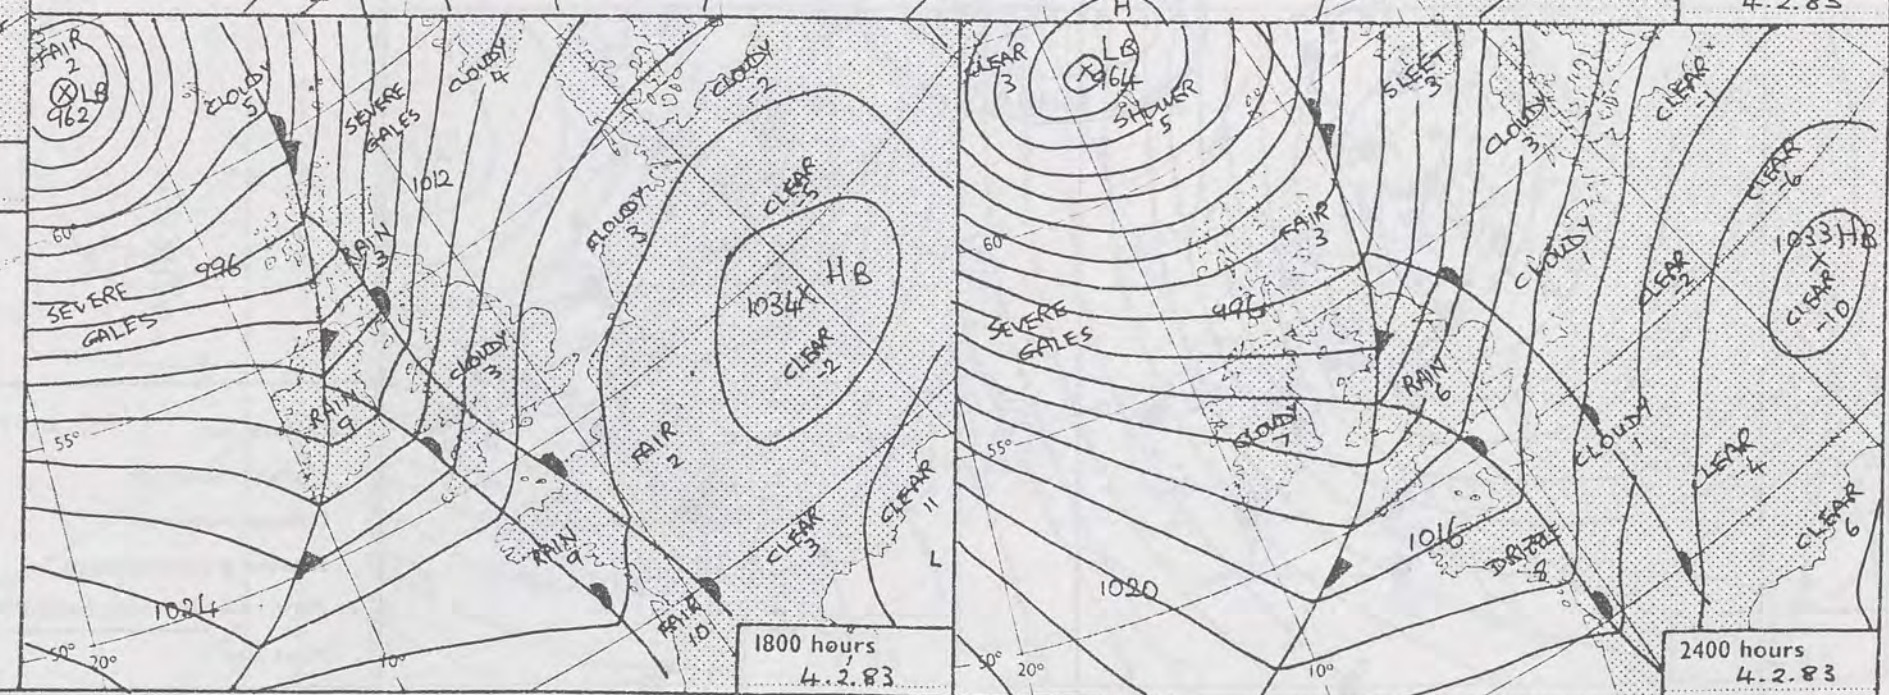 H
4.2.83
FAIR
2
LB
962
CLOUDY
5
SEVERE
GALES
CLOUDY
4
CLOUDY
-2
1012
CLEAR
-5
CLOUDY
3
60°
996
RAIN
3
SEVERE
GALES
HB
1034
CLEAR
-2
CLOUDY
3
RAIN
9
55°
FAIR
2
CLEAR
11
CLEAR
3
RAIN
9
L
1024
FAIR
10
50°
20°
10°
1800 hours
4.2.83
CLEAR
3
LB
964
SHOWER
5
SLEET
3
CLOUDY
3
CLEAR
-1
CLEAR
-6
FAIR
3
60°
CLOUDY
1
CLEAR
-2
1033 HB
CLEAR
-10
996
SEVERE
GALES
RAIN
6
CLOUDY
7
55°
CLOUDY
1
CLEAR
-4
CLEAR
6
1016
DRIZZL
8
1020
50°
20°
10°
2400 hours
4.2.83